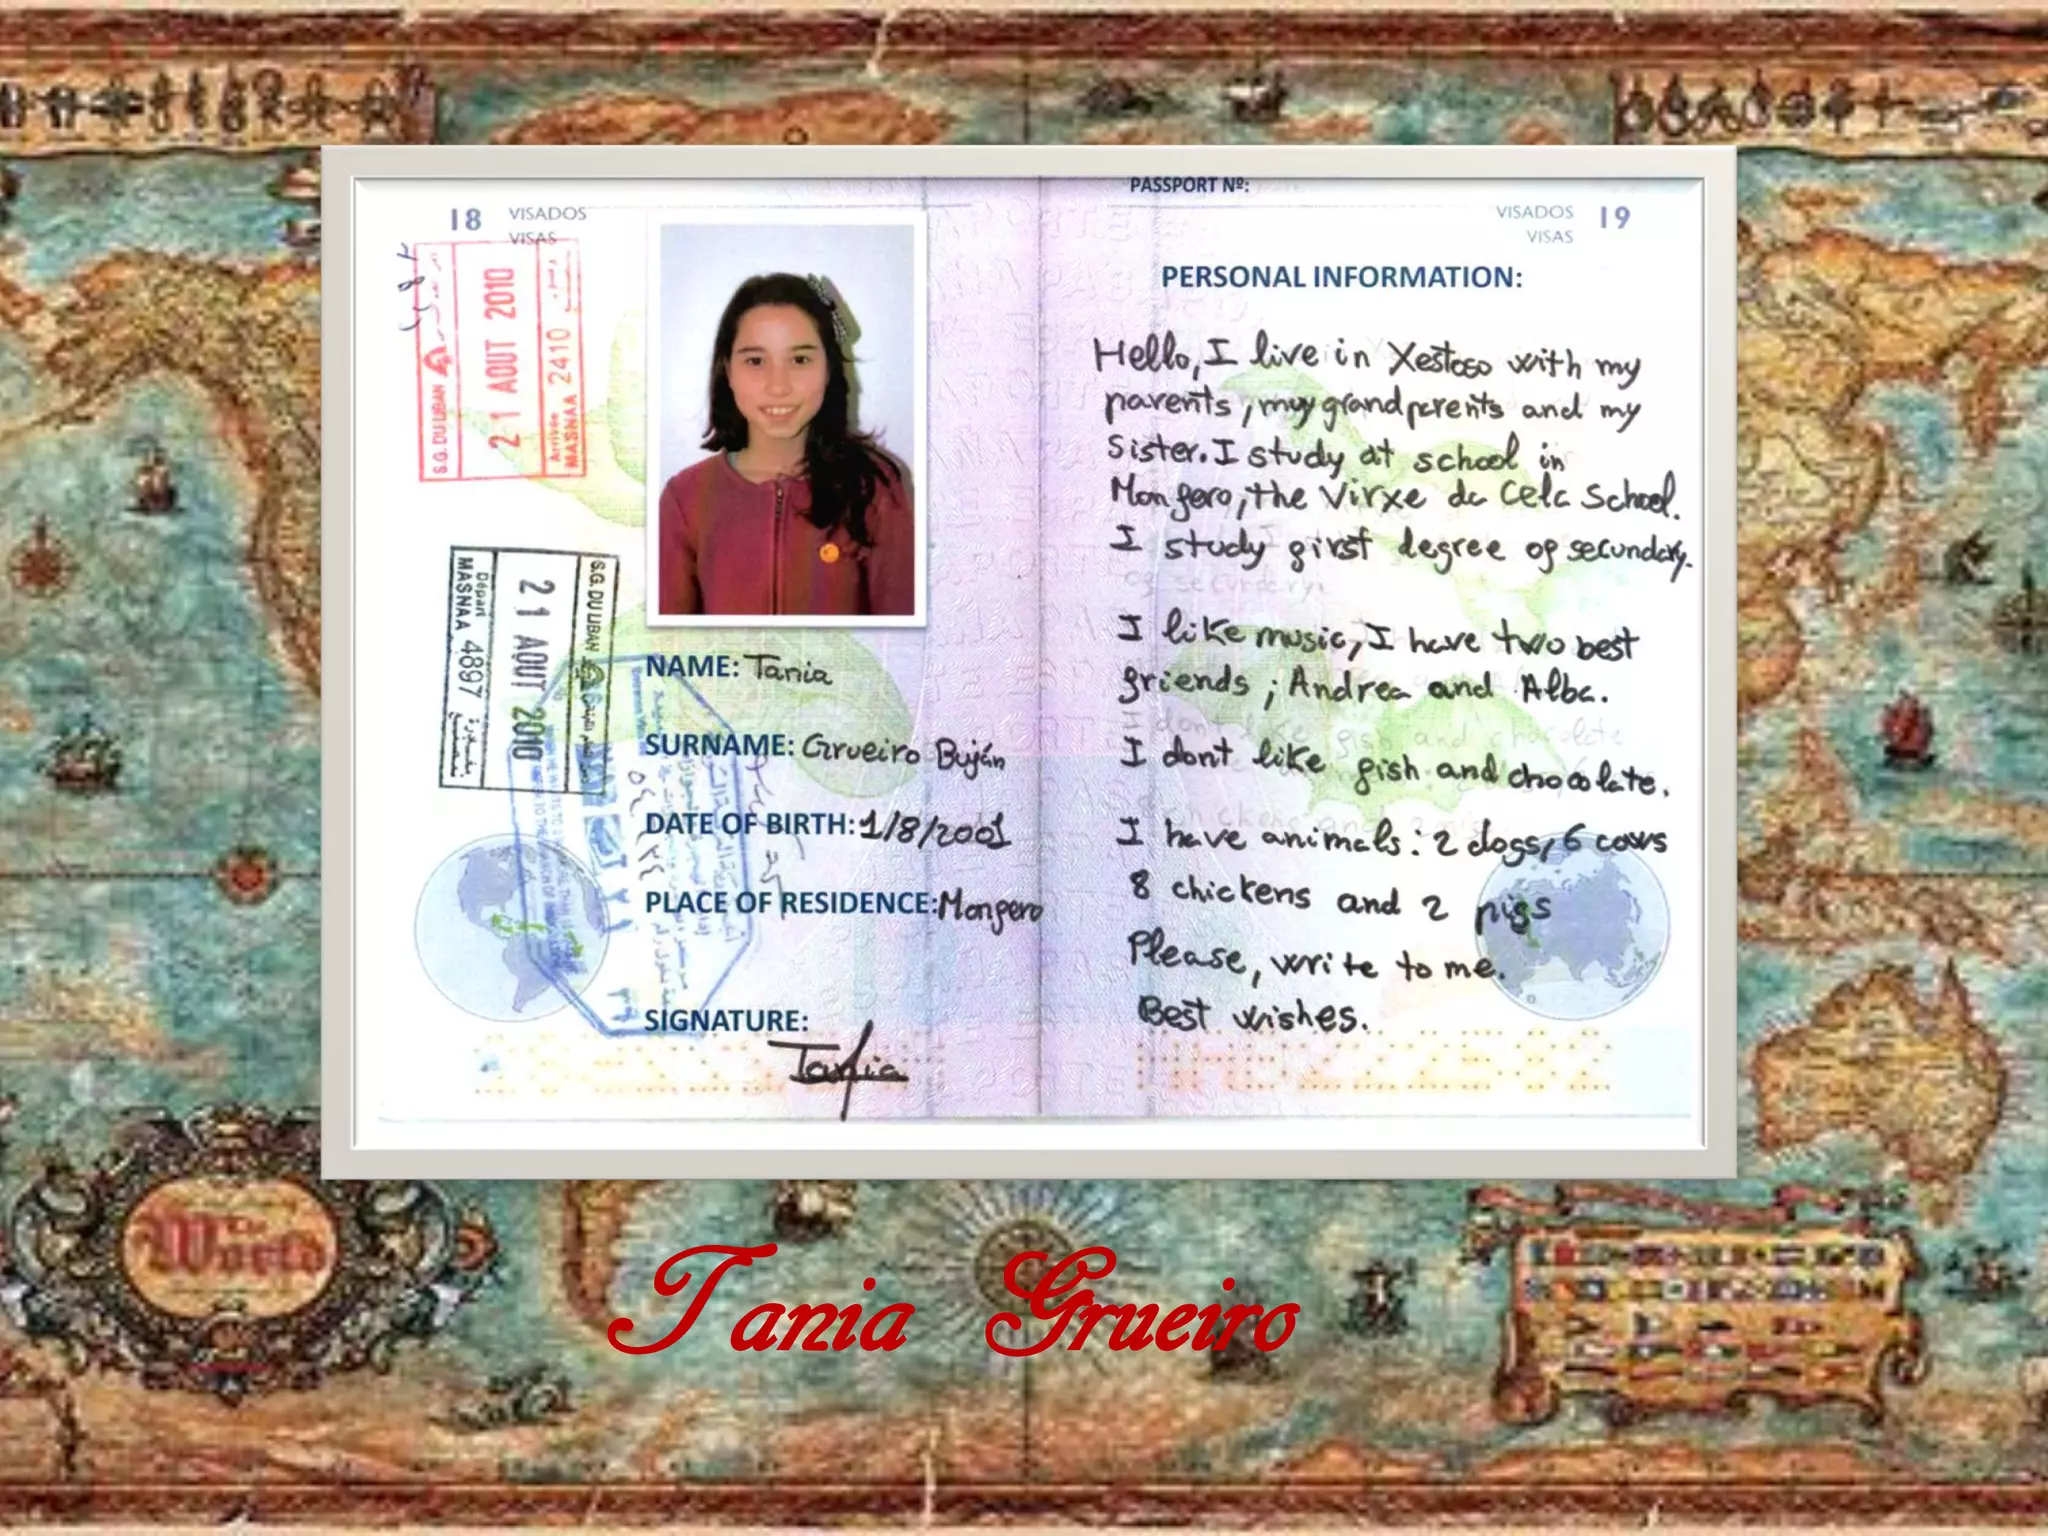 PASSPORT Nº:
18 VISADOS
VISAS
VISADOS 19
VISAS
S.G. DU LIBAN
21 AOUT 2010
Arrivée 2410
MASNAA
S.G. DU LIBAN
21 AOUT 2010
Départ 4897
MASNAA
NAME: Tania
SURNAME: Grueiro Buján
DATE OF BIRTH: 1/8/2001
PLACE OF RESIDENCE: Monfero
SIGNATURE:
Tania
PERSONAL INFORMATION:
Hello, I live in Xestoso with my
parents, my grandparents and my
sister. I study at school in
Monfero, the Virxe da Cela School.
I study first degree of secundary.
I like music, I have two best
friends; Andrea and Alba.
I dont like fish and chocolate.
I have animals: 2 dogs, 6 cows
8 chickens and 2 pigs
Please, write to me.
Best wishes.
The
World
Tania Grueiro